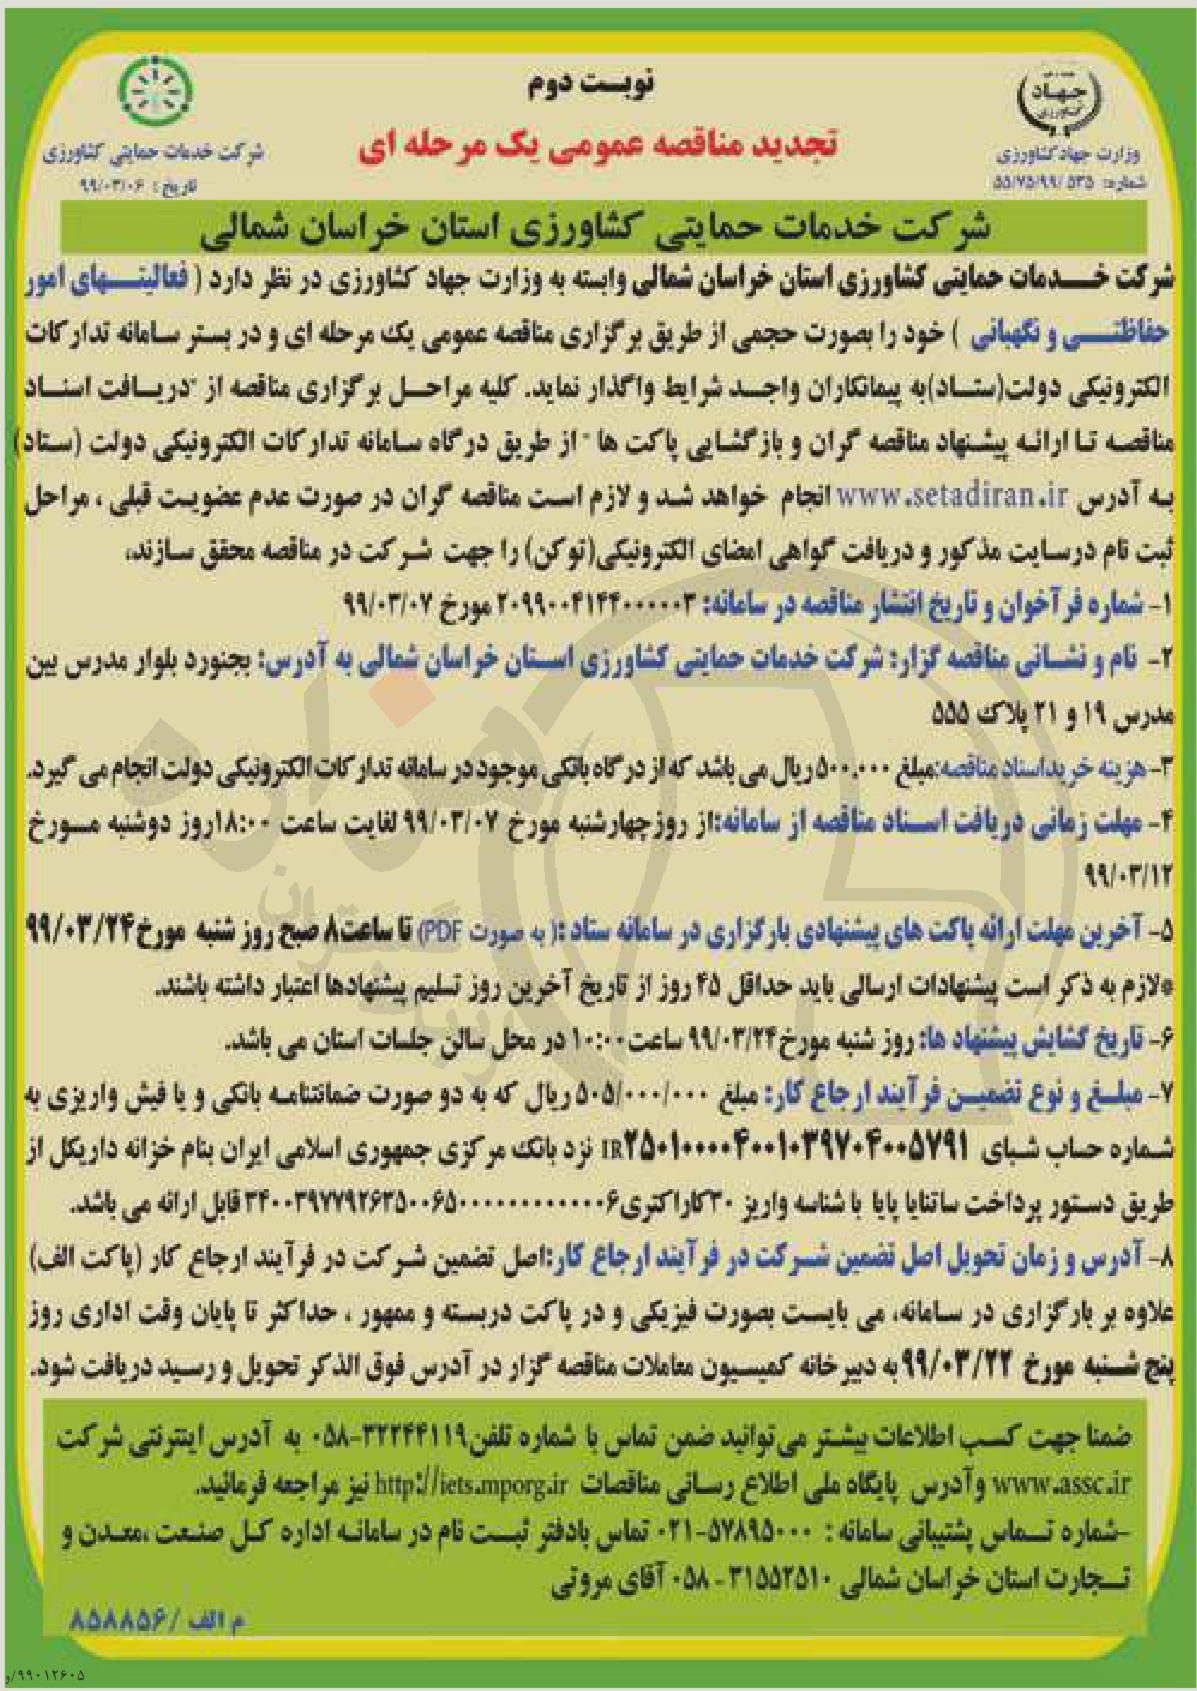 نوبت دوم
تجدید مناقصه عمومی یک مرحله ای
جهاد
کشاورزی
وزارت جهاد کشاورزی
شماره: ۵۵/۷۵/۹۹/۵۳۵
شرکت خدمات حمایتی کشاورزی
تاریخ: ۹۹/۰۳/۰۶
شرکت خدمات حمایتی کشاورزی استان خراسان شمالی
شرکت خدمات حمایتی کشاورزی استان خراسان شمالی وابسته به وزارت جهاد کشاورزی در نظر دارد ( فعالیتهای امور
حفاظتی و نگهبانی ) خود را بصورت حجمی از طریق برگزاری مناقصه عمومی یک مرحله ای و در بستر سامانه تدارکات
الکترونیکی دولت(ستاد)به پیمانکاران واجد شرایط واگذار نماید. کلیه مراحل برگزاری مناقصه از "دریافت اسناد
مناقصه تا ارائه پیشنهاد مناقصه گران و بازگشایی پاکت ها " از طریق درگاه سامانه تدارکات الکترونیکی دولت (ستاد)
به آدرس www.setadiran.ir انجام خواهد شد و لازم است مناقصه گران در صورت عدم عضویت قبلی ، مراحل
ثبت نام درسایت مذکور و دریافت گواهی امضای الکترونیکی(توکن) را جهت شرکت در مناقصه محقق سازند.
۱- شماره فرآخوان و تاریخ انتشار مناقصه در سامانه: ۲۰۹۹۰۰۴۱۴۴۰۰۰۰۰۳ مورخ ۹۹/۰۳/۰۷
۲- نام و نشانی مناقصه گزار: شرکت خدمات حمایتی کشاورزی استان خراسان شمالی به آدرس: بجنورد بلوار مدرس بین
مدرس ۱۹ و ۲۱ پلاک ۵۵۵
۳- هزینه خریداسناد مناقصه:مبلغ ۵۰۰,۰۰۰ ریال می باشد که از درگاه بانکی موجود در سامانه تدارکات الکترونیکی دولت انجام می گیرد.
۴- مهلت زمانی دریافت اسناد مناقصه از سامانه:از روزچهارشنبه مورخ ۹۹/۰۳/۰۷ لغایت ساعت ۱۸:۰۰روز دوشنبه مورخ
۹۹/۰۳/۱۲
۵- آخرین مهلت ارائه پاکت های پیشنهادی بارگزاری در سامانه ستاد :( به صورت PDF) تا ساعت۸ صبح روز شنبه مورخ۹۹/۰۳/۲۴
*لازم به ذکر است پیشنهادات ارسالی باید حداقل ۴۵ روز از تاریخ آخرین روز تسلیم پیشنهادها اعتبار داشته باشند.
۶- تاریخ گشایش پیشنهاد ها: روز شنبه مورخ۹۹/۰۳/۲۴ ساعت۱۰:۰۰ در محل سالن جلسات استان می باشد.
۷- مبلغ و نوع تضمین فرآیند ارجاع کار: مبلغ ۵۰۵/۰۰۰/۰۰۰ ریال که به دو صورت ضمانتنامه بانکی و یا فیش واریزی به
شماره حساب شبای IR۲۵۰۱۰۰۰۰۴۰۰۱۰۳۹۷۰۴۰۰۵۷۹۱ نزد بانک مرکزی جمهوری اسلامی ایران بنام خزانه داریکل از
طریق دستور پرداخت ساتنایا پایا با شناسه واریز ۳۰کاراکتری ۳۴۰۰۳۹۷۷۹۲۶۳۵۰۰۶۵۰۰۰۰۰۰۰۰۰۰۰۰۶ قابل ارائه می باشد.
۸- آدرس و زمان تحویل اصل تضمین شرکت در فرآیند ارجاع کار:اصل تضمین شرکت در فرآیند ارجاع کار (پاکت الف)
علاوه بر بارگزاری در سامانه، می بایست بصورت فیزیکی و در پاکت دربسته و ممهور ، حداکثر تا پایان وقت اداری روز
پنج شنبه مورخ ۹۹/۰۳/۲۲به دبیرخانه کمیسیون معاملات مناقصه گزار در آدرس فوق الذکر تحویل و رسید دریافت شود.
ضمنا جهت کسب اطلاعات بیشتر می‌توانید ضمن تماس با شماره تلفن۳۲۲۴۴۱۱۹-۰۵۸ به آدرس اینترنتی شرکت
www.assc.ir وآدرس پایگاه ملی اطلاع رسانی مناقصات http://iets.mporg.ir نیز مراجعه فرمائید.
-شماره تماس پشتیبانی سامانه : ۵۷۸۹۵۰۰۰-۰۲۱ تماس بادفتر ثبت نام در سامانه اداره کل صنعت ،معدن و
تجارت استان خراسان شمالی ۳۱۵۵۲۵۱۰ - ۰۵۸ آقای مروتی
م الف /۸۵۸۸۵۶
۹۹۰۱۲۶۰۵/و